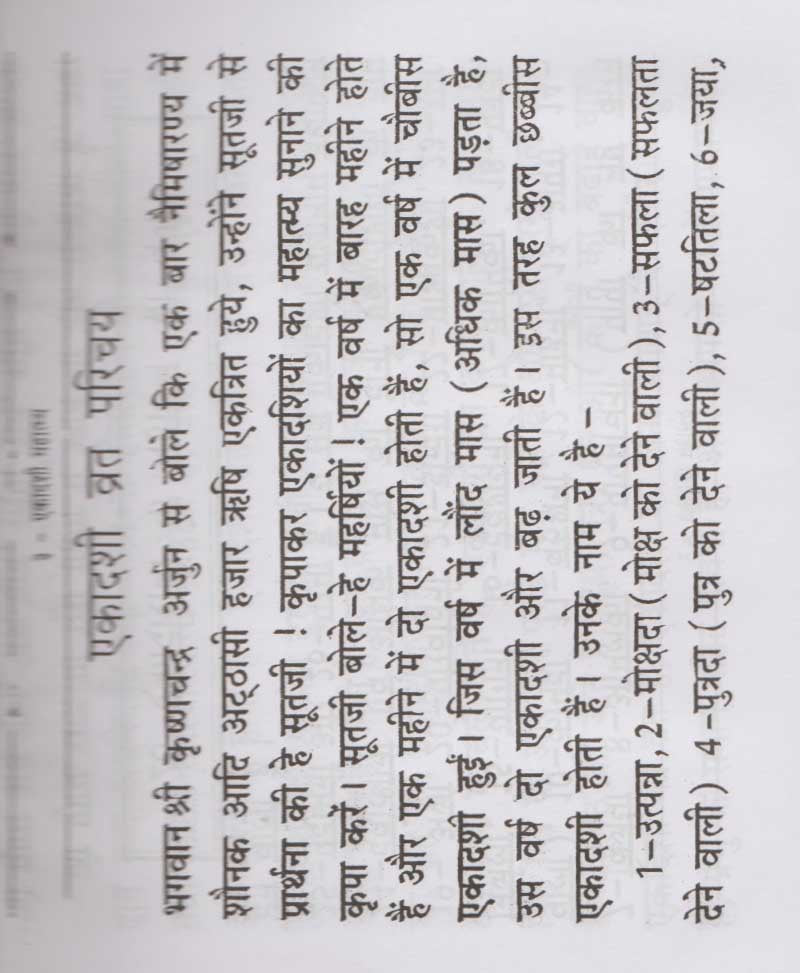 ३ - एकादशी महात्म्य
एकादशी व्रत परिचय
भगवान श्री कृष्णचन्द्र अर्जुन से बोले कि एक बार नैमिषारण्य में
शौनक आदि अट्ठासी हजार ऋषि एकत्रित हुये, उन्होंने सूतजी से
प्रार्थना की हे सूतजी ! कृपाकर एकादशियों का महात्म्य सुनाने की
कृपा करें। सूतजी बोले-हे महर्षियों ! एक वर्ष में बारह महीने होते
हैं और एक महीने में दो एकादशी होती हैं, सो एक वर्ष में चौबीस
एकादशी हुईं । जिस वर्ष में लौंद मास (अधिक मास) पड़ता है,
उस वर्ष दो एकादशी और बढ़ जाती हैं। इस तरह कुल छब्बीस
एकादशी होती हैं। उनके नाम ये हैं -
1-उत्पन्ना, 2-मोक्षदा ( मोक्ष को देने वाली ), 3-सफला ( सफलता
देने वाली ) 4-पुत्रदा ( पुत्र को देने वाली ), 5-षटतिला, 6-जया,